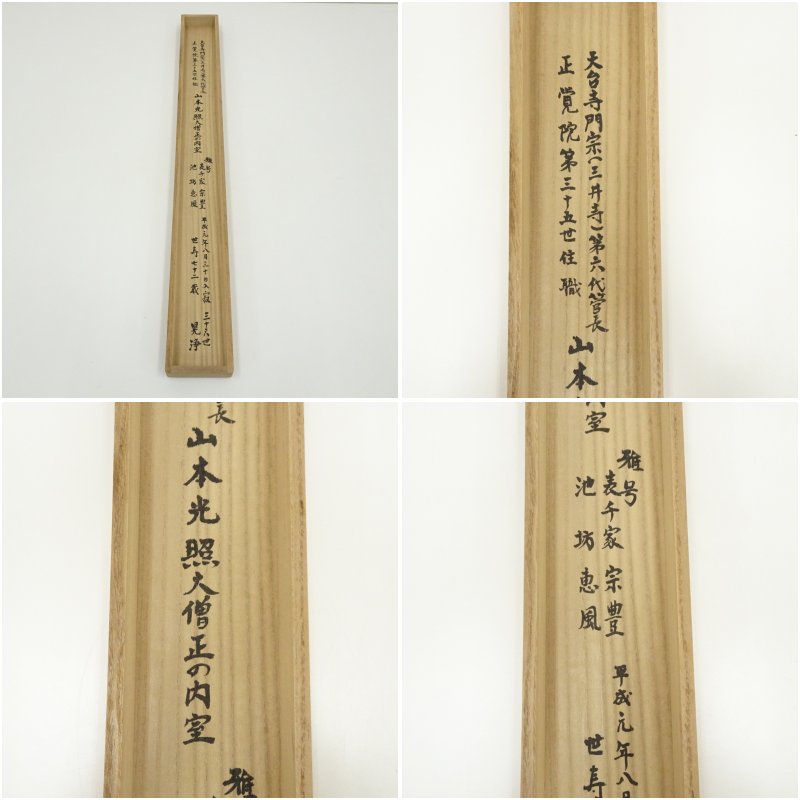 天台寺門宗(三井寺)第六代管長
正覚院第三十五世住職
山本光照大僧正の内室
雅号
表千家 宗豊
池坊 恵風
平成元年八月三十日入寂
世寿七十二歳
三十六世
晃浄
天台寺門宗(三井寺)第六代管長
正覚院第三十五世住職
山本
長
山本光照大僧正の内室
雅
内室
雅号
表千家 宗豊
池坊 恵風
平成元年八日
世寿